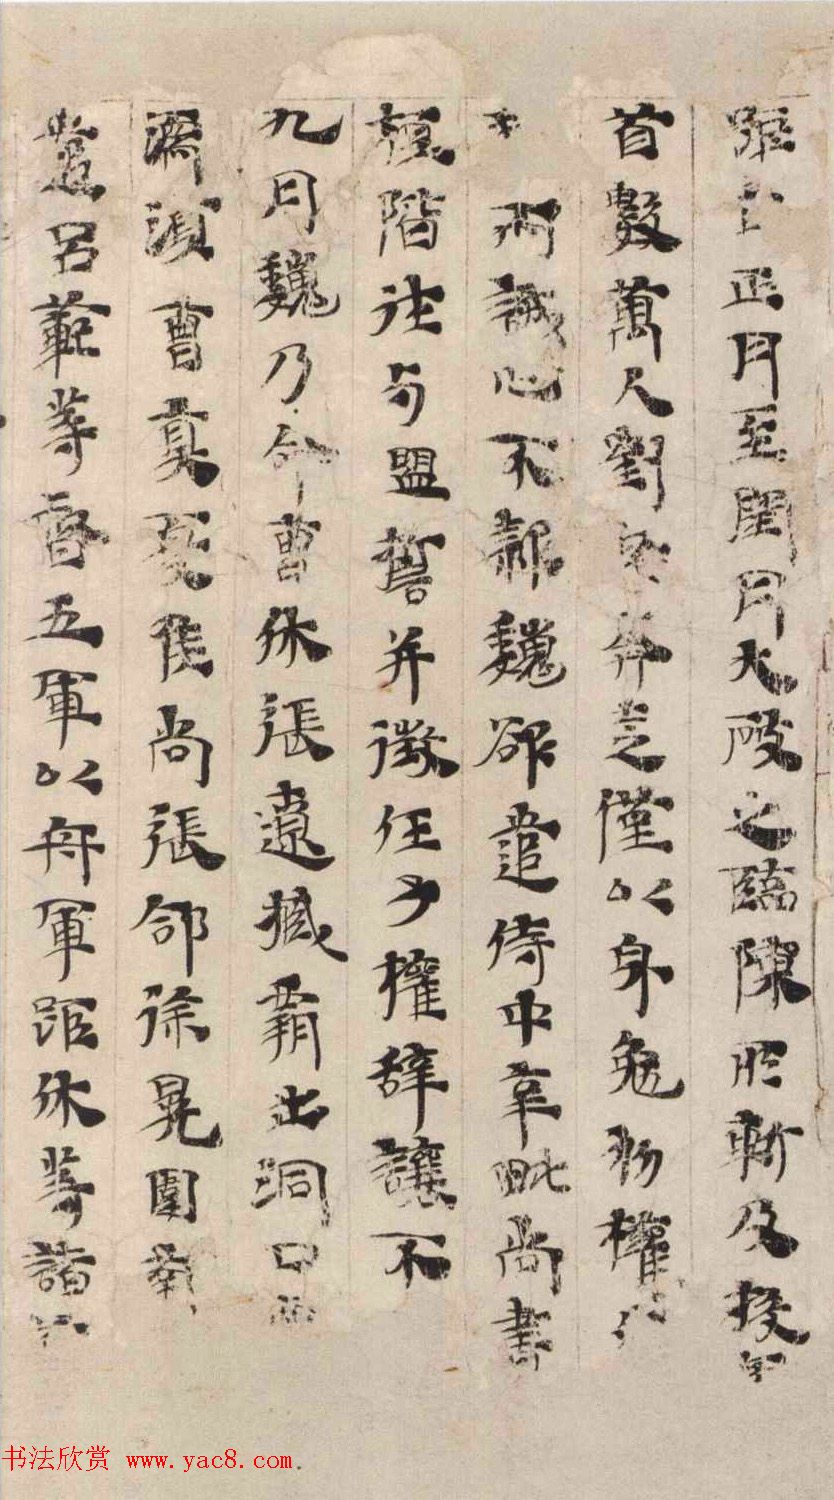 正月至閏月大破之臨陳所斬及投
首數萬人劉奔走僅以身免初權
內誠心不款魏欲遣侍中辛毗尚書
桓階往与盟誓并徵任子權辞讓不
九月魏乃命曹休張遼臧霸出洞口
濡須曹真夏侯尚張郃徐晃圍南
遣呂範等督五軍以舟軍距休等諸
书法欣赏 www.yac8.com